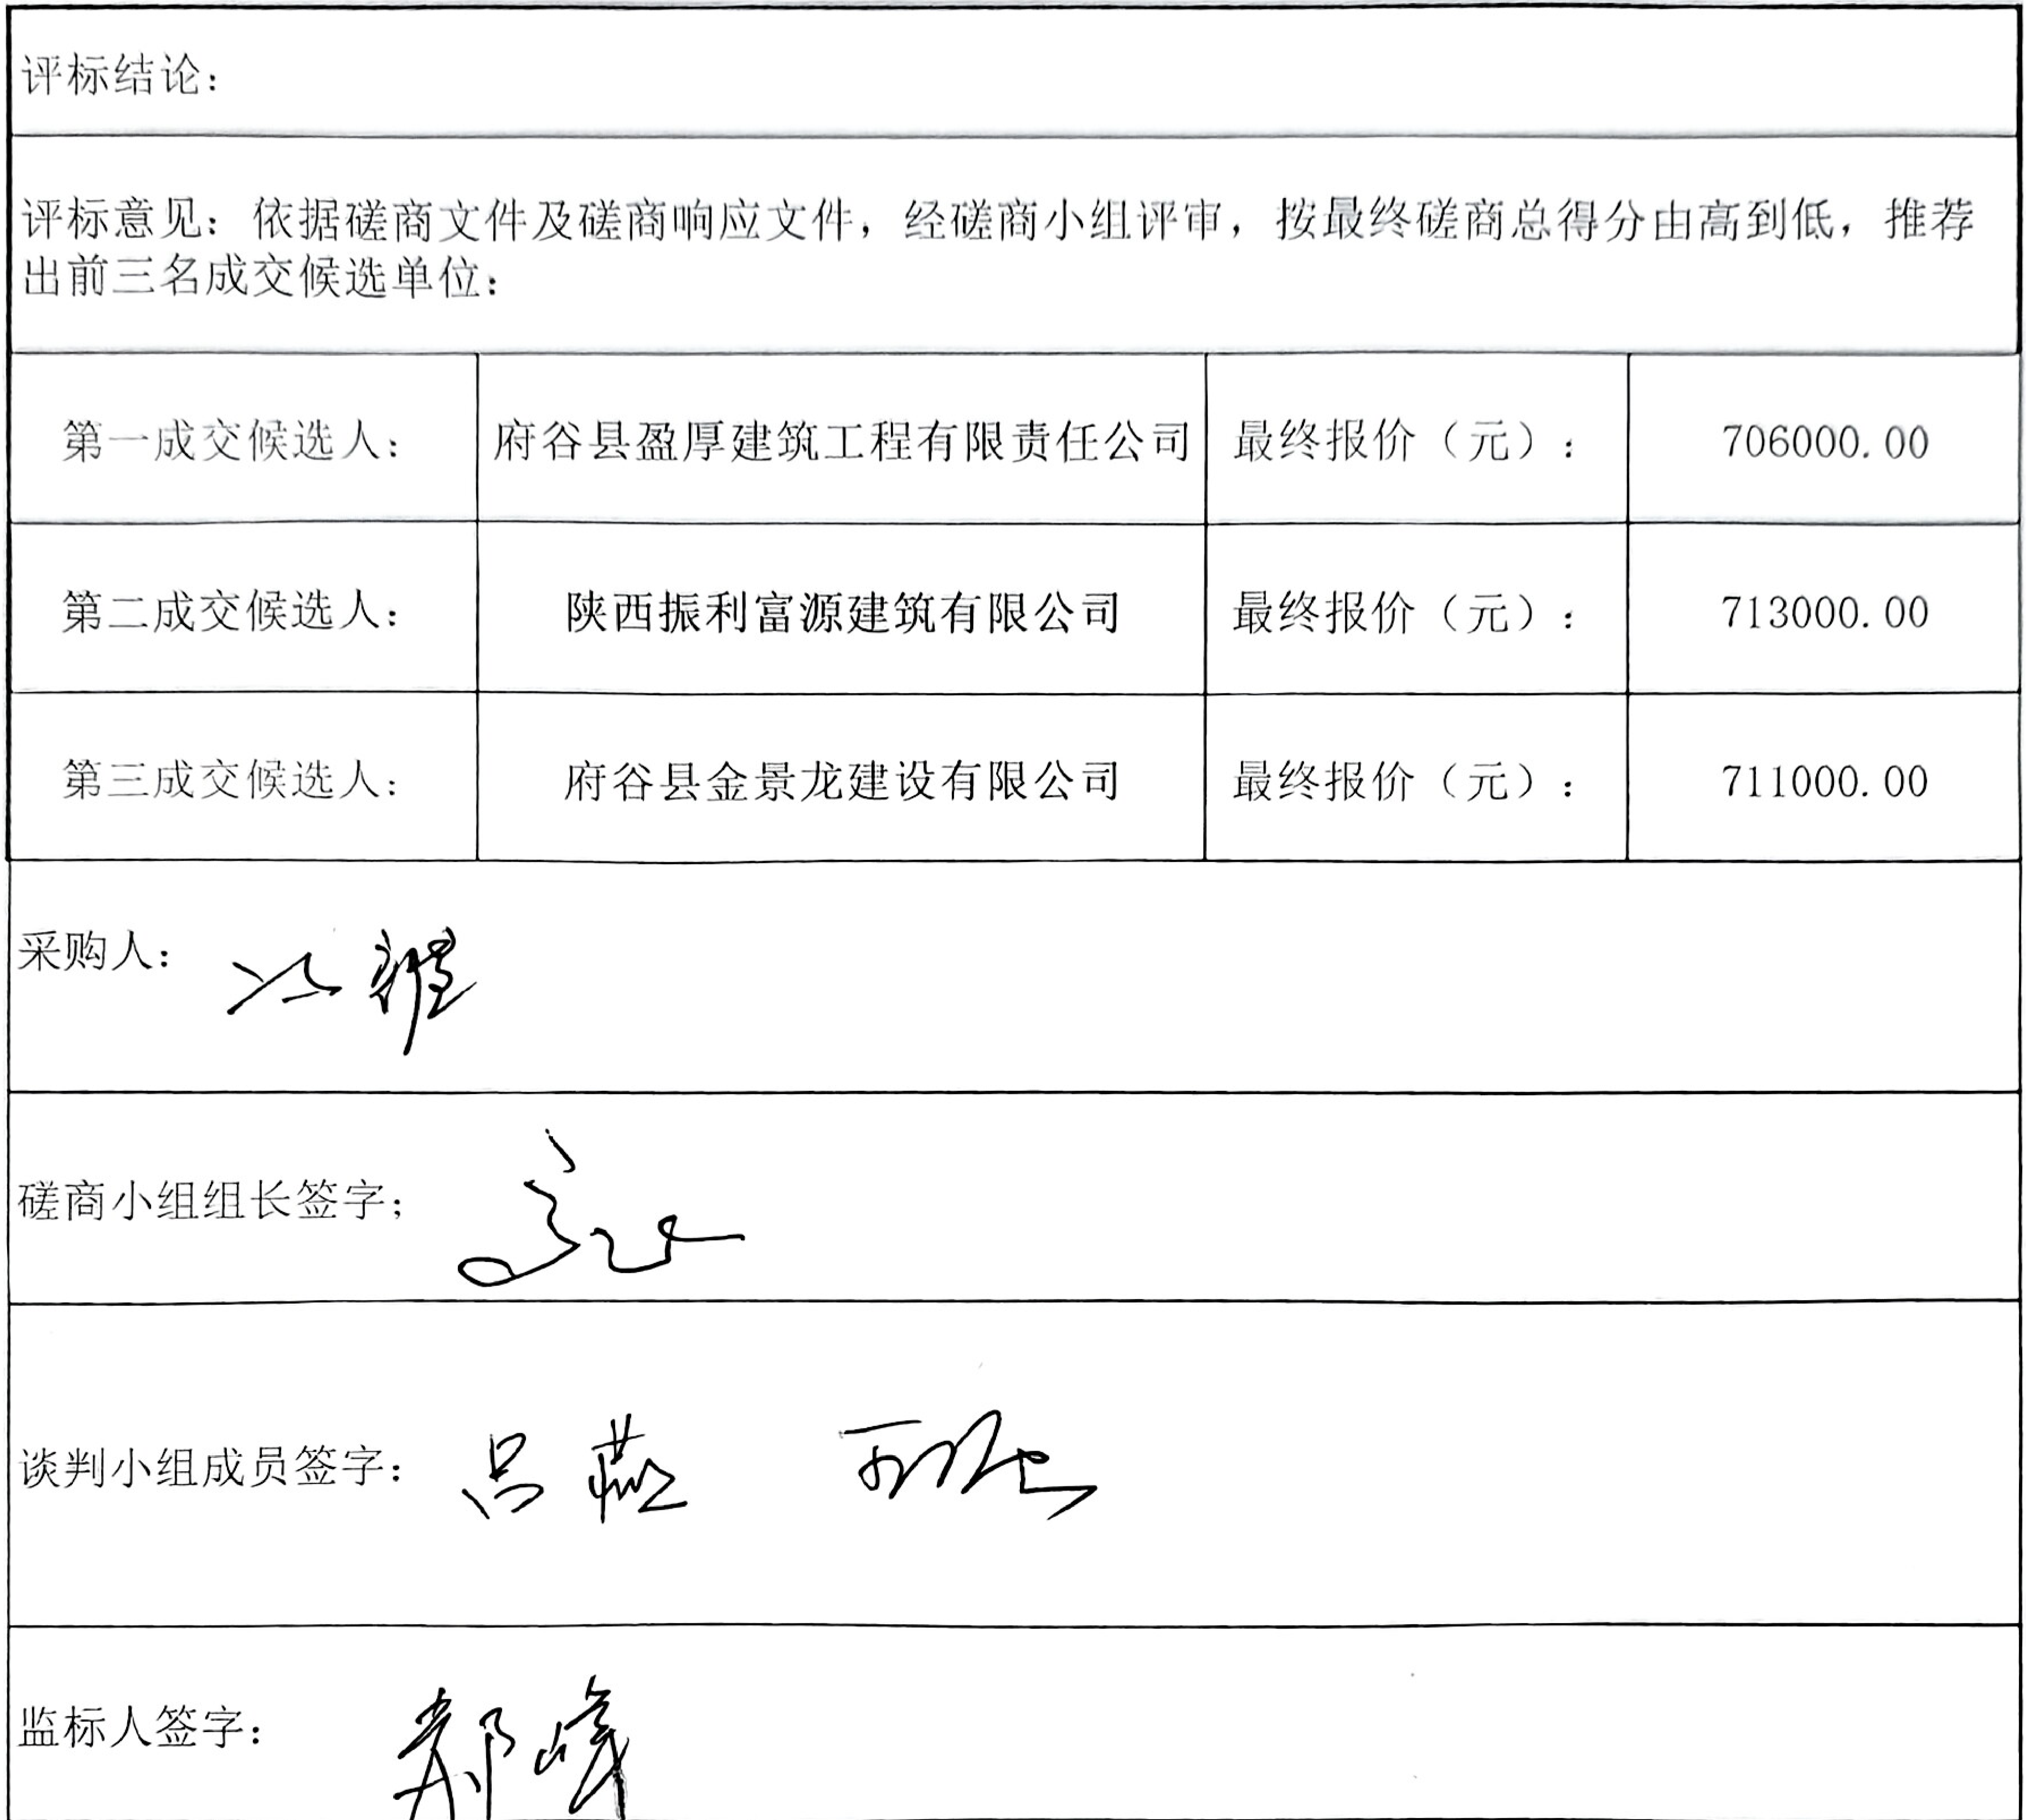 评标结论：
评标意见：依据磋商文件及磋商响应文件，经磋商小组评审，按最终磋商总得分由高到低，推荐
出前三名成交候选单位：
第一成交候选人： 府谷县盈厚建筑工程有限责任公司 最终报价（元）： 706000.00
第二成交候选人： 陕西振利富源建筑有限公司 最终报价（元）： 713000.00
第三成交候选人： 府谷县金景龙建设有限公司 最终报价（元）： 711000.00
采购人：
磋商小组组长签字；
谈判小组成员签字： 吕燕
监标人签字： 郝峰